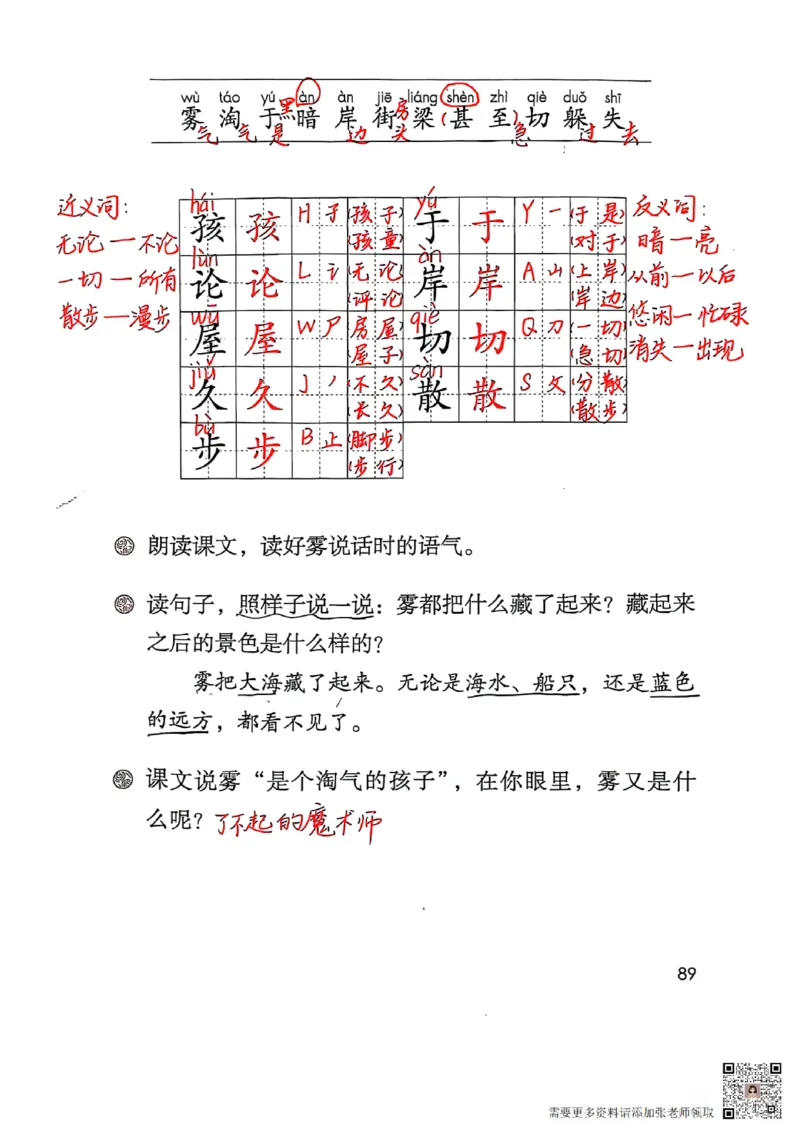 wù táo yú àn àn jiē liáng shèn zhì qiè duǒ shī
雾 淘 于 黑暗 岸 街 房梁 (甚 至) 切 躲 失
气 气 是 边 头 急 过 去
近义词：
无论一不论
一切一所有
散步一漫步
hái yú
孩 孩 H 子 (孩子) 于 于 Y 一 (于是)
(孩童) (对于)
lùn àn
论 论 L 讠 (无论) 岸 岸 A 山 (上岸)
(评论) (岸边)
wū qiè
屋 屋 W 尸 (房屋) 切 切 Q 刀 (一切)
(屋子) (急切)
jiǔ sàn
久 久 J 丿 (不久) 散 散 S 攵 (分散)
(长久) (散步)
bù
步 步 B 止 (脚步)
(步行)
反义词：
暗一亮
从前一以后
悠闲一忙碌
消失一出现
朗读课文，读好雾说话时的语气。
读句子，照样子说一说：雾都把什么藏了起来？藏起来
之后的景色是什么样的？
雾把大海藏了起来。无论是海水、船只，还是蓝色
的远方，都看不见了。
课文说雾“是个淘气的孩子”，在你眼里，雾又是什
么呢？了不起的魔术师
89
需要更多资料请添加张老师领取